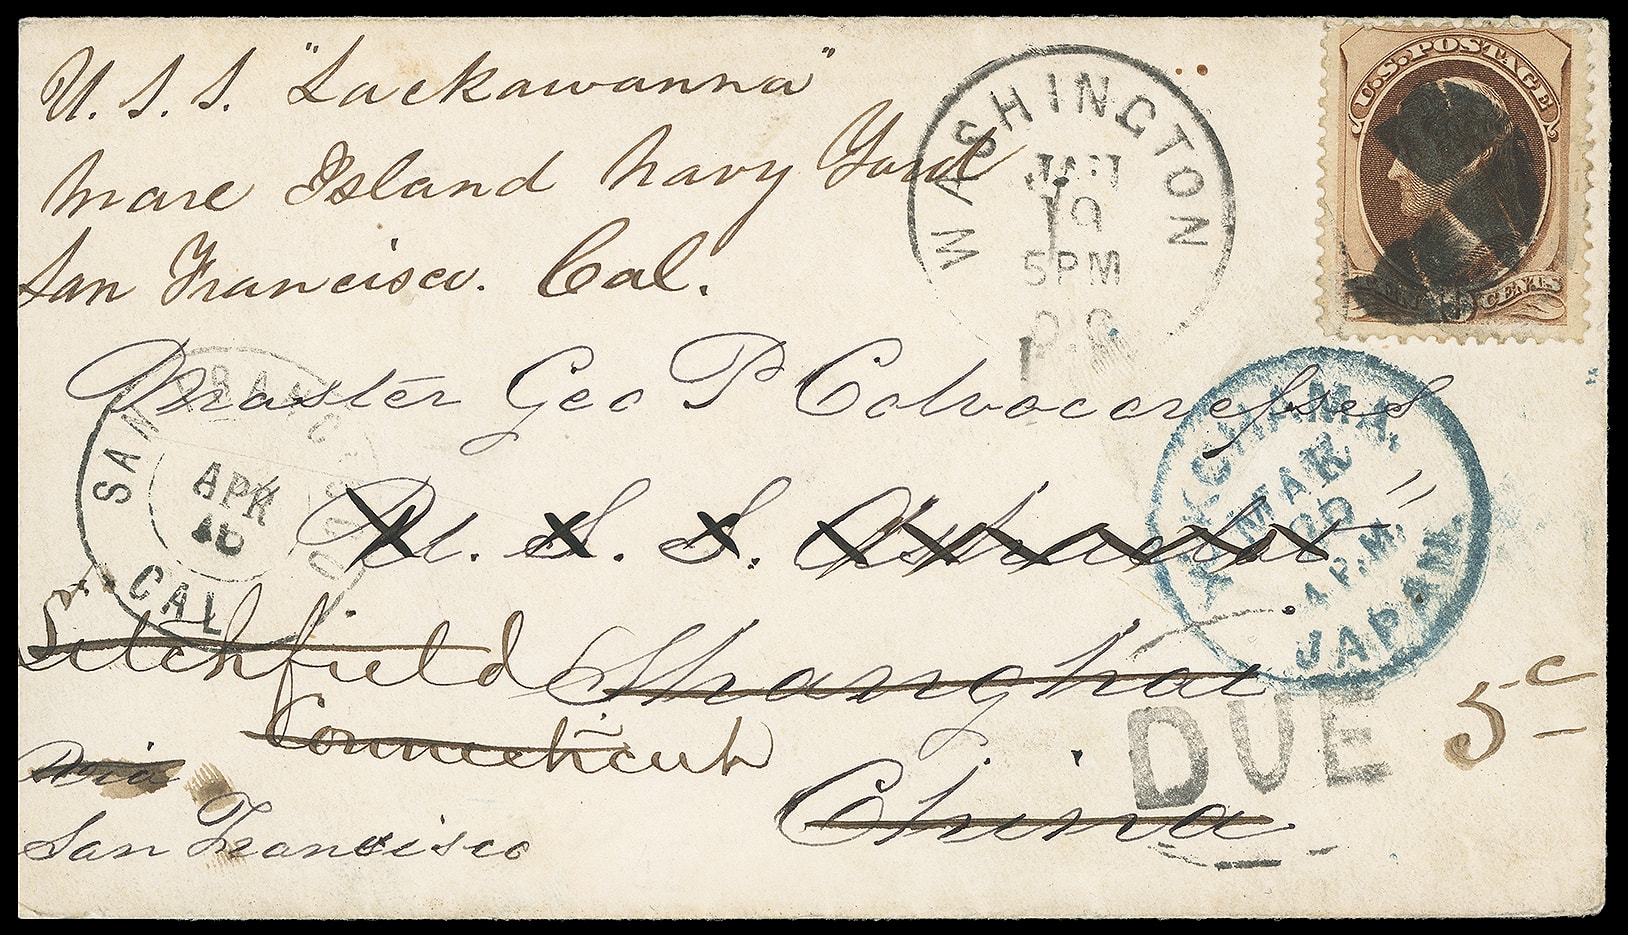 U.S.S. "Lackawanna"
Mare Island Navy Yard
San Francisco. Cal.
WASHINGTON
JAN
19
5PM
D.C.
U.S. POSTAGE
Master Geo P Colvocoresses
U.S.S. Ashuelot"
SAN FRANCISCO
APR
CAL
YOKOHAMA,
MAR
4 P.M.
JAPAN
Litchfield
Shanghai
Connecticut
DUE
5c
China
Via
San Francisco